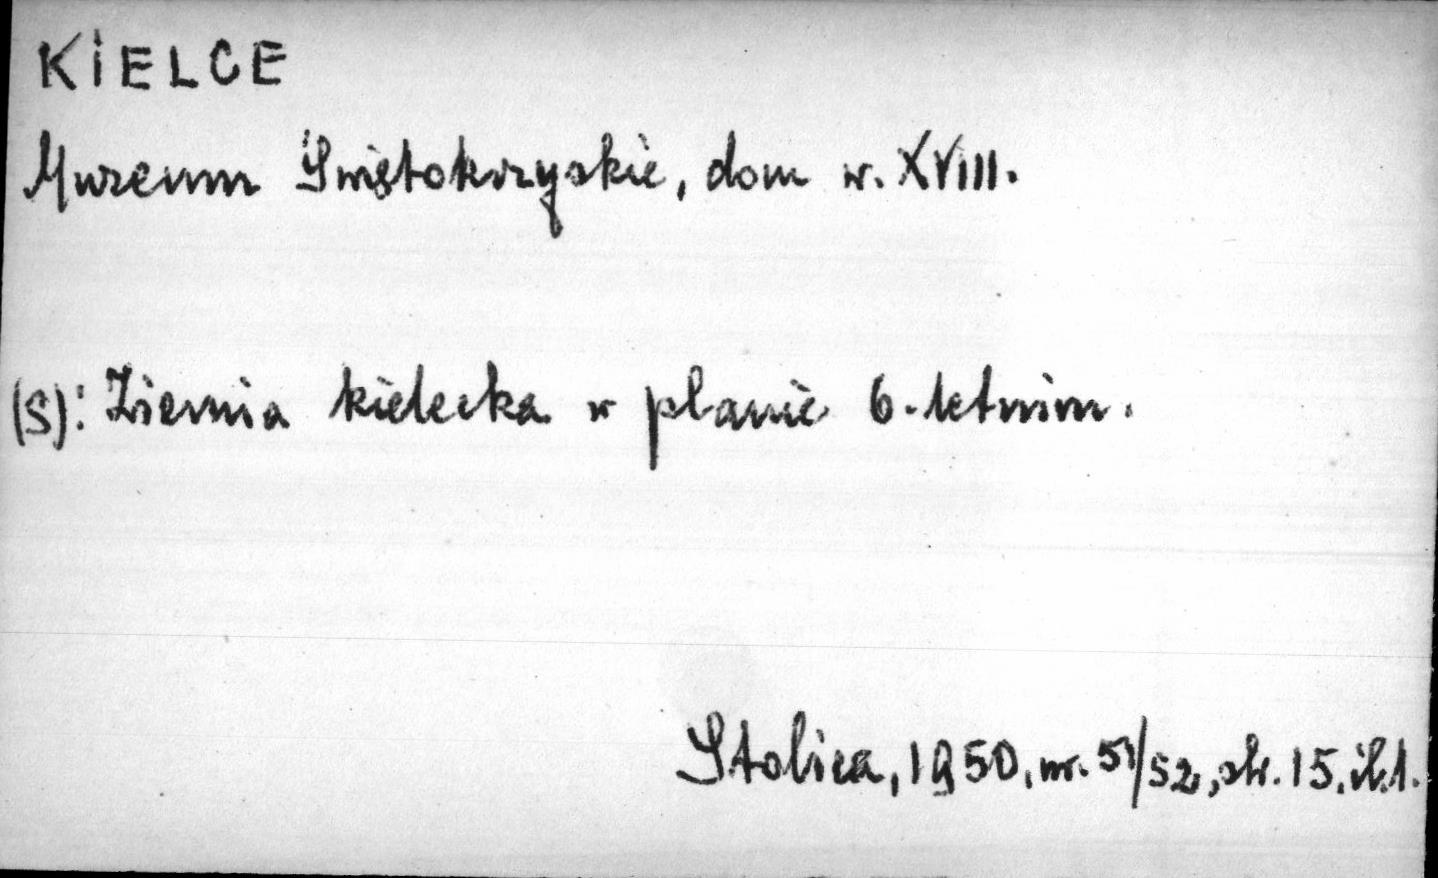 KIELCE
Muzeum Świętokrzyskie, dom w. XVIII.
(S): Ziemia kielecka w planie 6-letnim.
Stolica, 1950, nr. 51/52, str. 15, il.1.